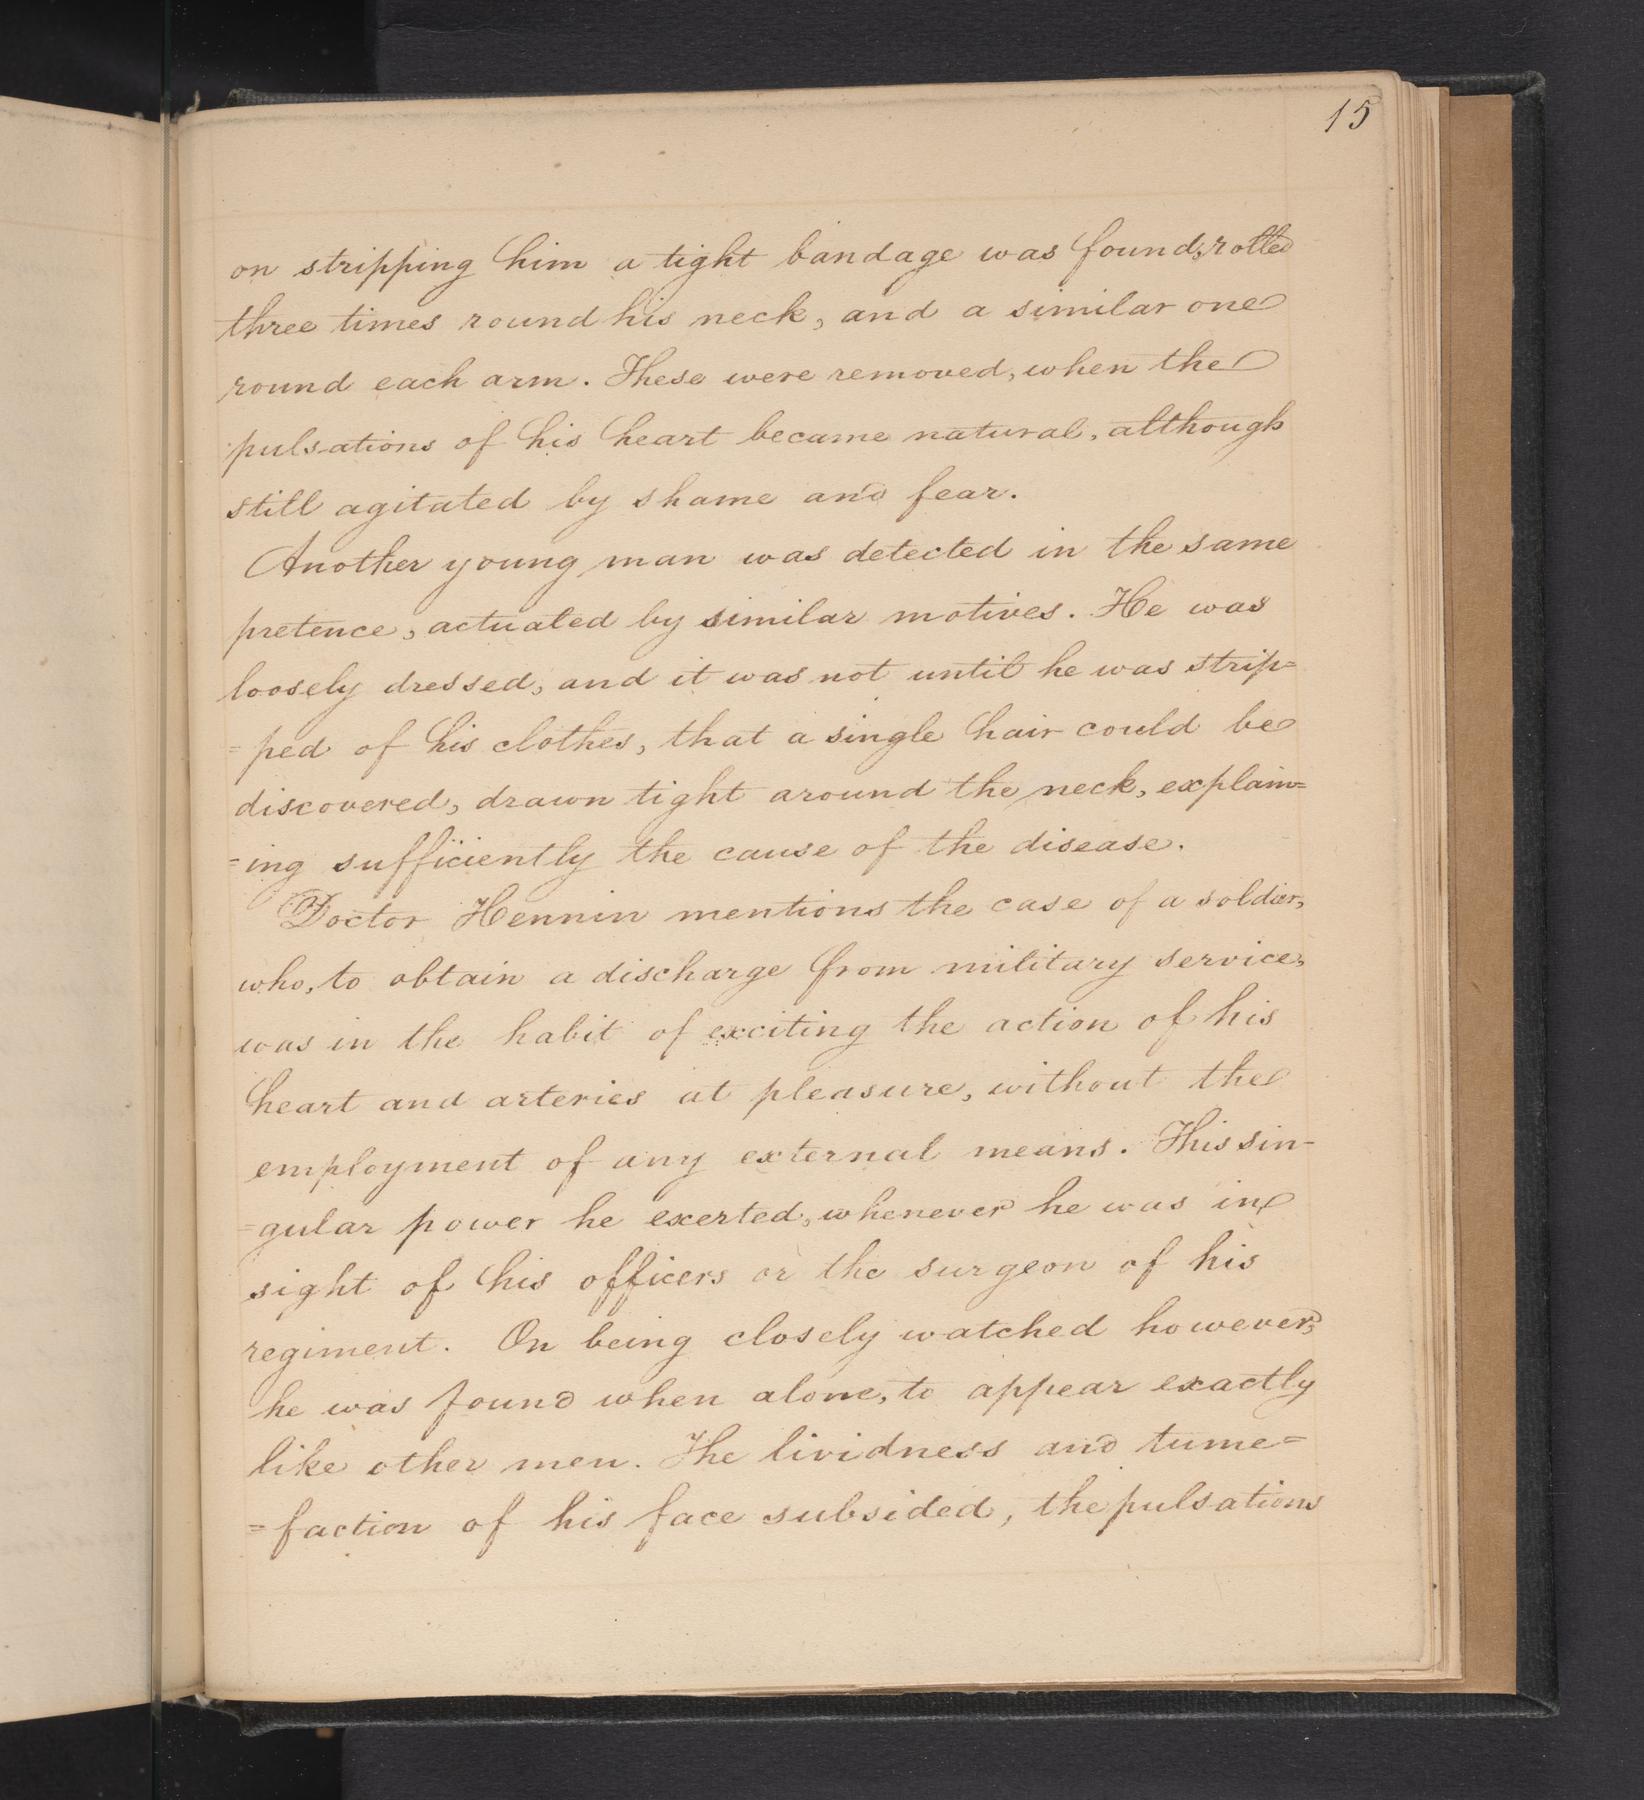 15
on stripping him a tight bandage was found, rolled
three times round his neck, and a similar one
round each arm. These were removed, when the
pulsations of his heart became natural, although
still agitated by shame and fear.
Another young man was detected in the same
pretence, actuated by similar motives. He was
loosely dressed, and it was not until he was strip=
=ped of his clothes, that a single hair could be
discovered, drawn tight around the neck, explain=
=ing sufficiently the cause of the disease.
Doctor Hennin mentions the case of a soldier,
who, to obtain a discharge from military service,
was in the habit of exciting the action of his
heart and arteries at pleasure, without the
employment of any external means. This sin-
=gular power he exerted, whenever he was in
sight of his officers or the surgeon of his
regiment. On being closely watched however,
he was found when alone, to appear exactly
like other men. The lividness and tume=
=faction of his face subsided, the pulsations